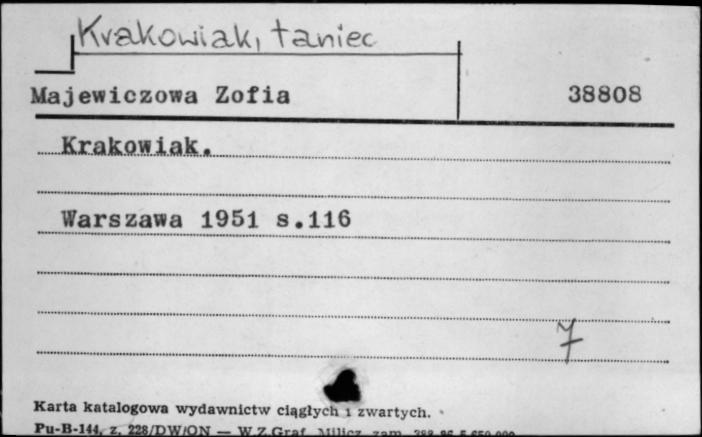 Krakowiak, taniec
Majewiczowa Zofia 38808
Krakowiak.
Warszawa 1951 s.116
7
Karta katalogowa wydawnictw ciągłych i zwartych.
Pu-B-144, z. 228/DW/ON — W.Z.Graf. Milicz zam.